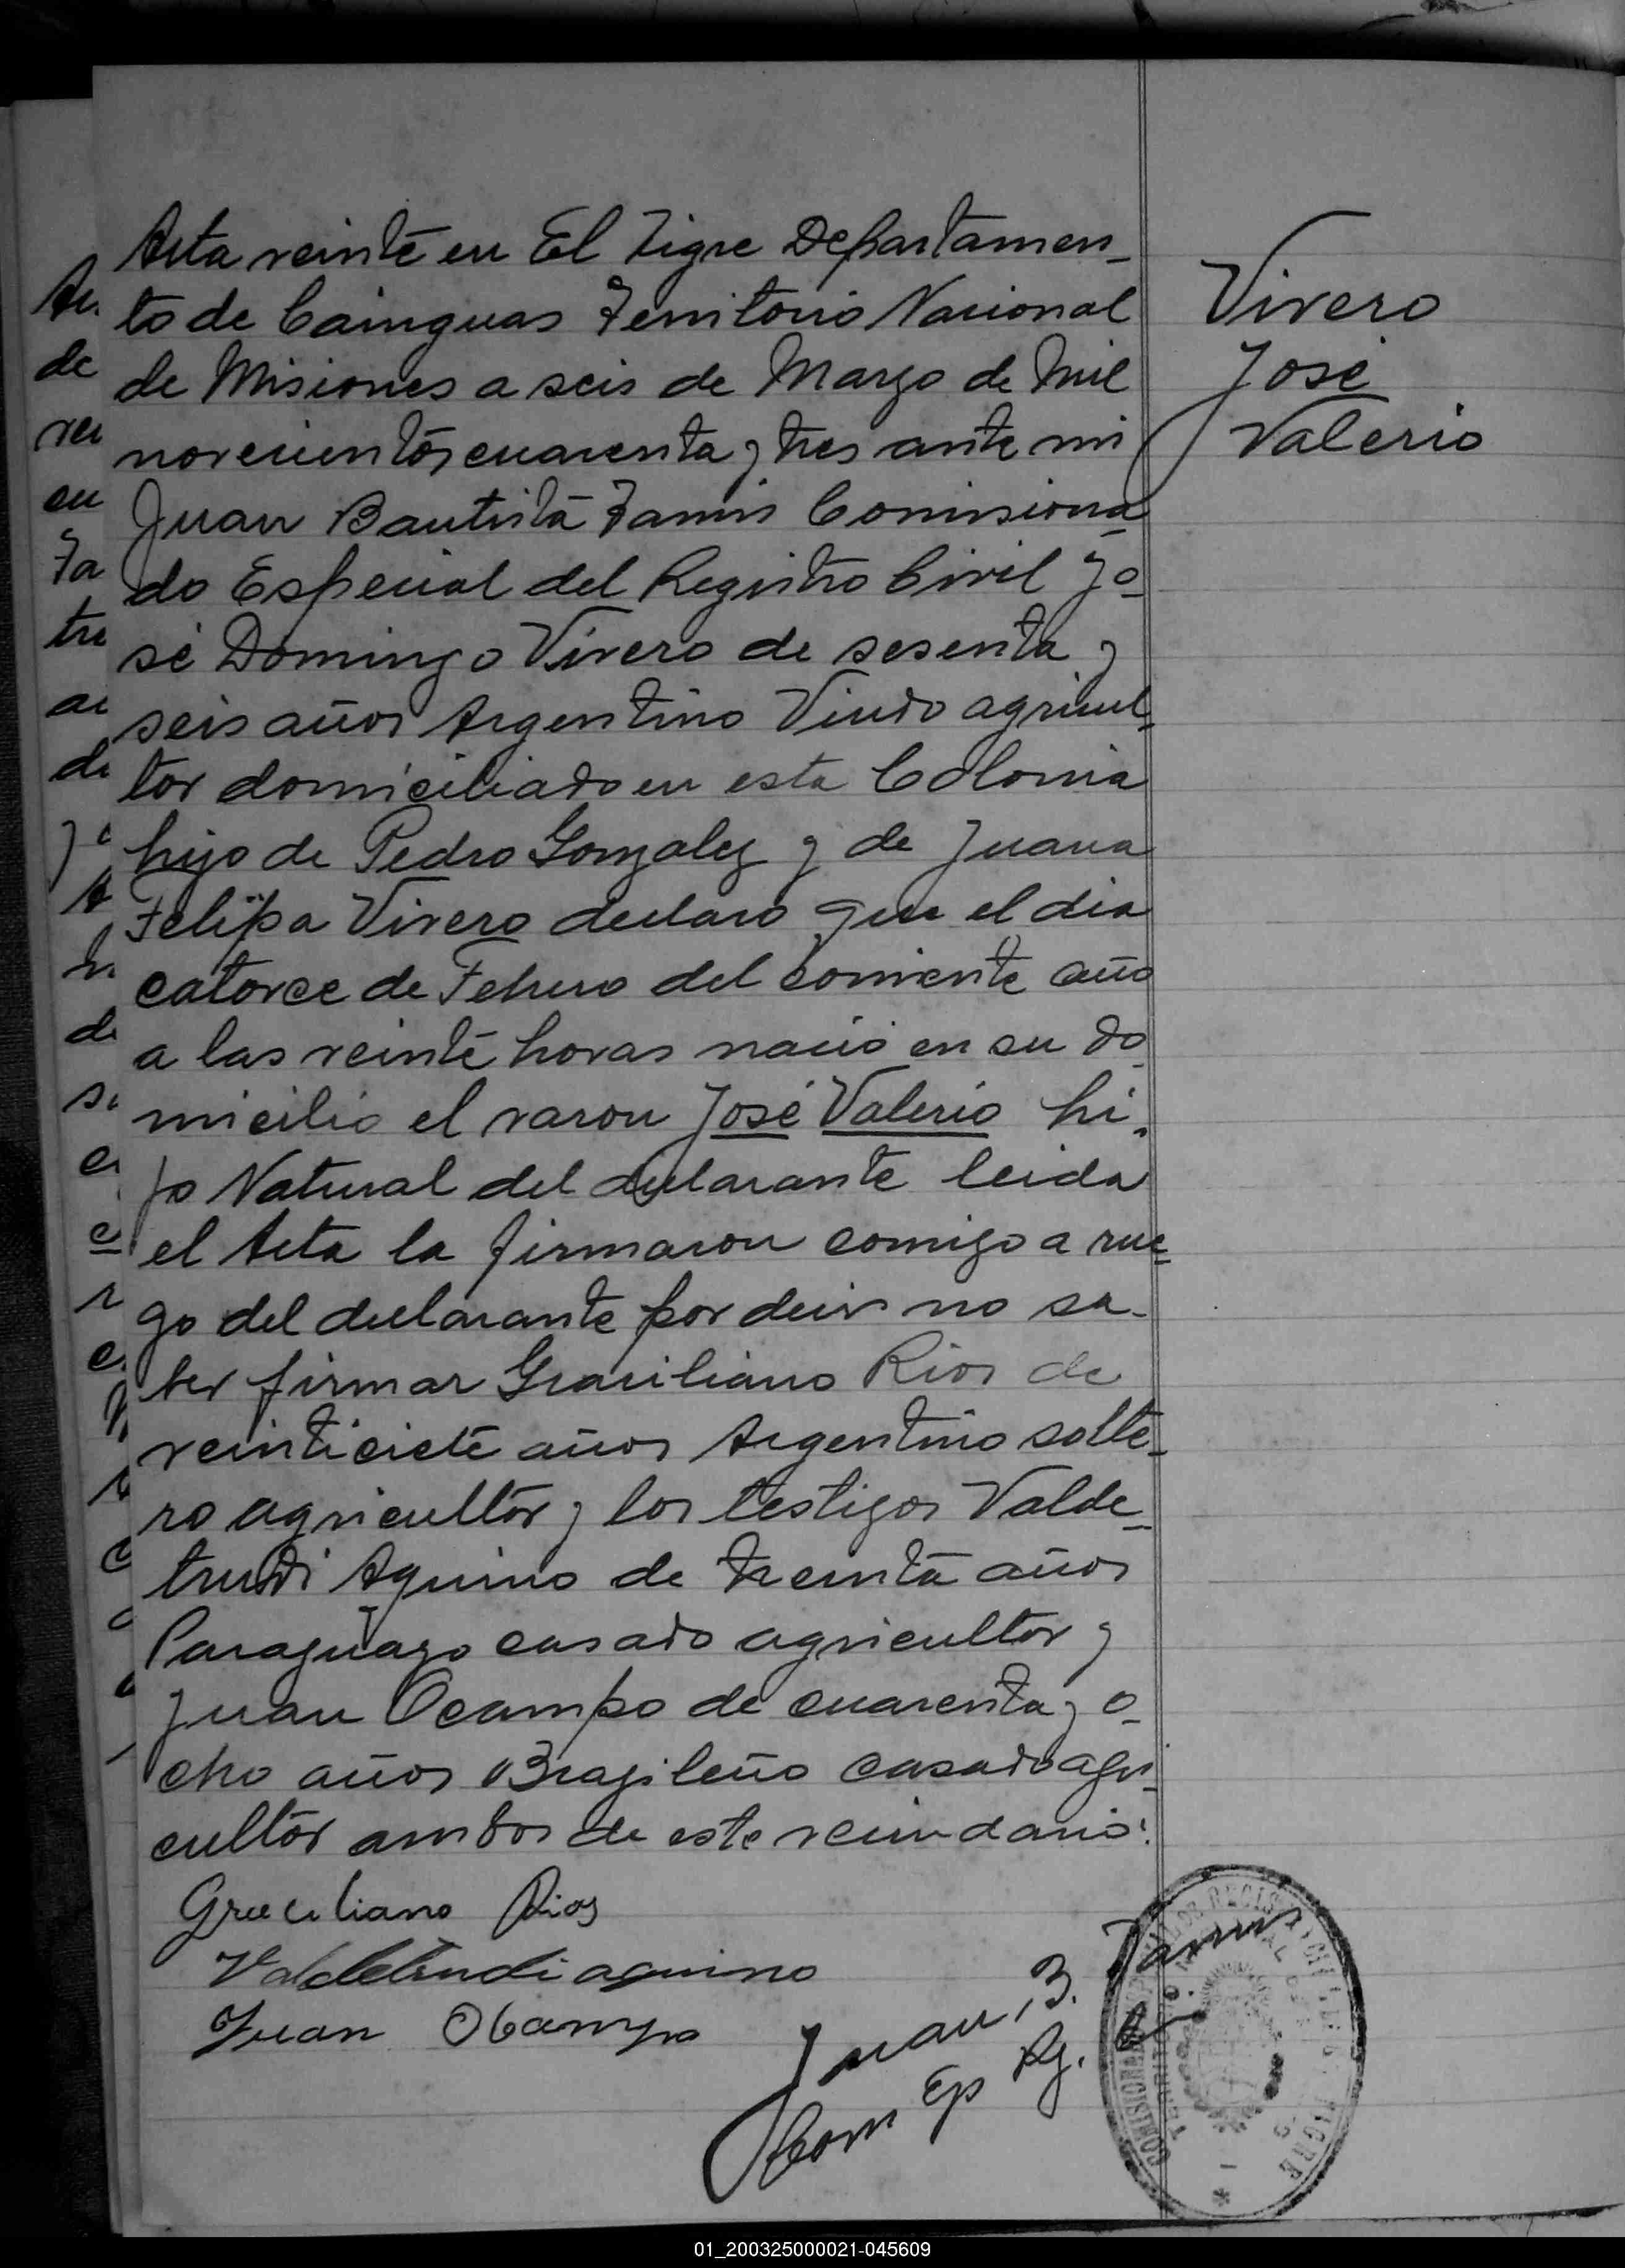 Acta veinte en El Tigre Departamen-
to de Cainguas Territorio Nacional
de Misiones a seis de Marzo de Mil
novecientos cuarenta y tres ante mi
Juan Bautista Comisiona
do Especial del Registro Civil Jo-
sé Domingo Vivero de sesenta y
seis años Argentino Viudo agricul-
tor domiciliado en esta Colonia
hijo de Pedro Gonzalez y de Juana
Felipa Vivero declaro que el dia
catorce de Febrero del corriente año
a las veinte horas nació en su do
micilio el varon José Valerio hi-
jo Natural del declarante leida
el Acta la firmaron comigo a rue-
go del declarante por decir no sa-
ber firmar Graciliano Rios de
veinticiete años Argentino solte-
ro agricultor y los testigos Valde-
trudi Aquino de treinta años
Paraguayo casado agricultor y
Juan Ocampo de cuarenta y o-
cho años Brazileño casado agri-
cultor ambos de este vecindario.
Graciliano Rios
Valdetrudi aquino
Juan Ocampo
Juan B.
Com Esp Rg. C.
Vivero
José
Valerio
01_200325000021-045609